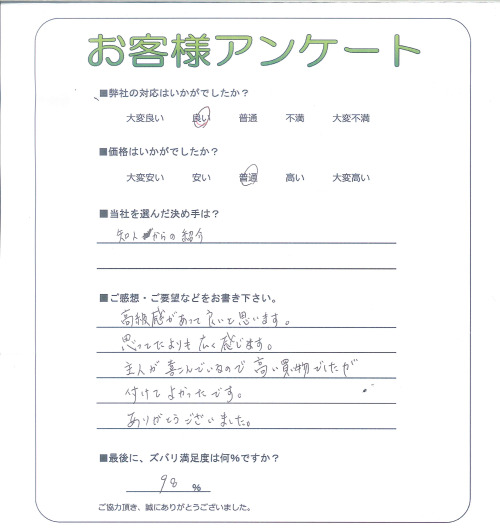 お客様アンケート
■弊社の対応はいかがでしたか？
大変良い 良い 普通 不満 大変不満
■価格はいかがでしたか？
大変安い 安い 普通 高い 大変高い
■当社を選んだ決め手は？
知人からの紹介
■ご感想・ご要望などをお書き下さい。
高級感があって良いと思います。
思ってたよりも広く感じます。
主人が喜こんでいるので高い買物でしたが
付けてよかったです。
ありがとうございました。
■最後に、ズバリ満足度は何%ですか？
98 %
ご協力頂き、誠にありがとうございました。